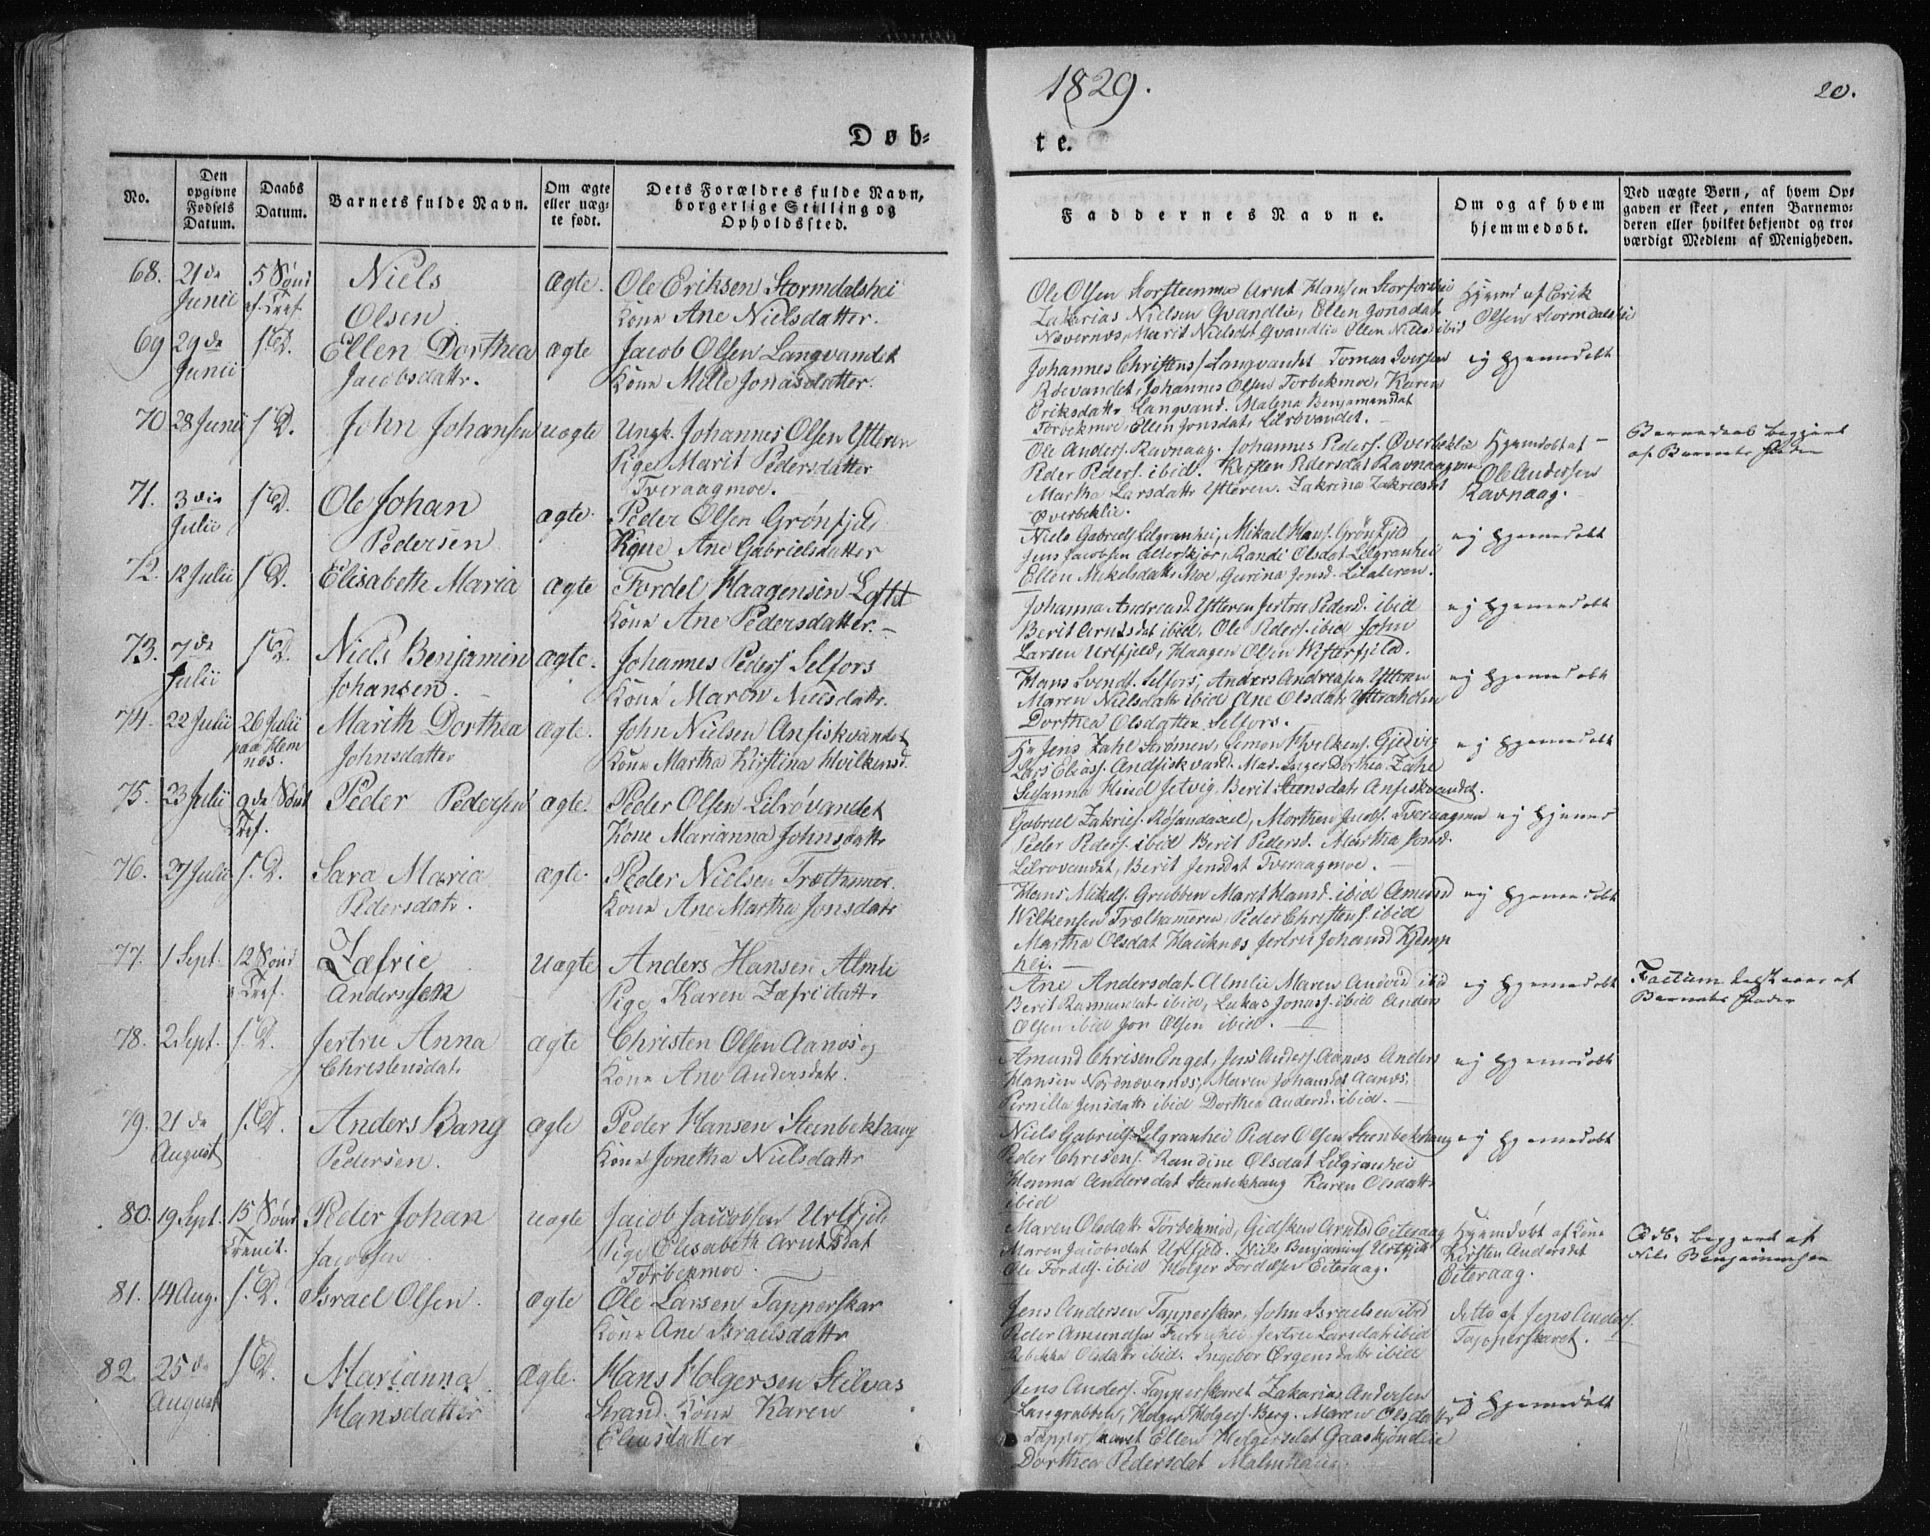 1829.
20.
Døb-
te.
No.
Den opgivne Fødsels Datum.
Daabs Datum.
Barnets fulde Navn.
Om ægte eller uægte født.
Dets Forældres fulde Navn, borgerlige Stilling og Opholdssted.
Faddernes Navne.
Om og af hvem hjemmedøbt.
Ved uægte Børn, af hvem Opgaven er skeet, enten Barnemoderen eller hvilket bekjendt og troværdigt Medlem af Menigheden.
68. 21de Junii 5 Sønd ef. Tref. Niels Olsen ægte. Ole Eriksen Stormdalshei
Kone Ane Nielsdatter.
Ole Olsen Storsteenmoe Arnt Hansen Storforshei
Zakarias Nielsen Qvandlie, Ellen Jonsdat
Nævernæs, Marit Nielsdat Qvandlie Ellen Niels ibid
Hjemd af Erik
Olsen Stormdalshei
69 29de Junii S. D. Ellen Dorthea Jacobsdattr. ægte Jacob Olsen Langvandet
Kone Mille Jonasdatter.
Johannes Christens. Langvandet Tomas Iversen
Røevandet, Johannes Olsen Torbekmoe, Karen
Eriksdattr Langvand. Malena Benjamensdat
Torbekmoe, Ellen Jonsdat, Lilrøvandet.
ej hjemmedøbt
70 28 Junii S. D. John Johansen uægte Ungk. Johannes Olsen Ytteren
Pige Marit Pedersdatter
Tveraagmoe.
Ole Anders. Ravnaag. Johannes Peders. Øverbeklie
Peder Peders. ibid. Kirsten Pedersdat Ravnaagmoe
Martha Larsdattr Ytteren. Zakrina Zakriesdat
Øverbeklie.
Hjemdøbt af
Ole Andersen
Ravnaag.
af Barnets Fader
71. 3die Julii S. D. Ole Johan Pedersen ægte. Peder Olsen Grønfjeld
Kone Ane Gabrielsdatter
Niels Gabriels. Lilgranhei, Mikael Hans. Grønfjeld
Jens Jacobsen Alterskjær, Randi Olsdat Lilgranhei
Ellen Mikelsdattr Moe, Gurina Jensd. Lilateren.
ej hjemmedøbt
72. 12 Julii S. D. Elisabeth Maria ægte Fordel Haagensen
Kone Ane Pedersdatter.
Johanna Andreasd. Ytteren Jertru Pedersd. ibid
Berit Arntsdat ibid, Ole Peders. ibid John
Larsen Urtfjeld, Haagen Olsen
ej hjemmedøbt
73. 7de Julii S. D. Niels Benjamin Johansen. ægte. Johannes Peders. Selfors
Kone Maren Nielsdattr.
Hans Svends. Selfors, Anders Andreasen Ytteren
Maren Nielsdattr ibid Ane Olsdat, Ytteraholm
Dorthea Olsdatter Selfors.
ej hjemmedøbt
74. 22 Julii 26 Julii paa Hemnæs. Marith Dorthea Johnsdatter ægte. John Nielsen Anfiskvandet
Kone Martha Kirstina Hvilkensd.
Hr Jens Zahl Strømen, Simon Hvilkens. Gjedvig
Lars Elias. Andfiskvand. Mad. Inger Dorthea Zahl
Susanna Hind Jetvig. Berit Steensdatr Anfiskvandet.
ej hjemmedøbt
75. 23 Julii 9de Sønd Tref. Peder Pedersen ægte. Peder Olsen Lilrøvandet
Kone Marianna Johnsdattr
Gabriel Zakries. Røsandaxel, Morthen Jacobs. Tveraagmoe
Peder Peders. ibid Berit Pedersd. Martha Jonsd.
Lilrøvandet, Berit Jensdat Tveraagmoe.
ej hjemes
76. 27 Julii S. D. Sara Maria Pedersdatr. ægte. Peder Nielsen
Kone Ane Martha Jonsdatr
Hans Mikels. Grubben Maret Hansd. ibid Amund
Wilkensen Trælhameren, Peder Christens. ibid
Martha Olsdat Hauknæs Jertru Johansd Kjemp
hei.
ej hjemmedøbt
77. 1 Sept. 12 Sønd Tref. Zæfrie Anderssen uægte Anders Hansen Almli
Pige Karen Zæfridattr.
Ane Andersdat. Almlie Maren Andersd ibid
Berit Rasmusdat ibid, Lukas Jonas. ibid Anders
Olsen ibid Jon Olsen ibid.
ej hjemmedøbt
Factum af
Barnets Fader
78. 2 Sept. S. D. Jertru Anna Christensdat. ægte Christen Olsen Aanæs og
Kone Ane Andersdatr.
Amund Chrisen Enget, Jens Anders. Aanæs Anders
Hansen Nordnævernæs, Maren Johansdat Aanæs,
Pernilla Jensdattr ibid Dorthea Andersd. ibid.
ej hjemmedøbt
79. 21de August S. D. Anders Bang Pedersen. ægte Peder Hansen Steenbekhaug
Kone Jonetha Nielsdattr
Niels Gabriels Lilgranhei Peder Olsen Steenbekhaug
Peder Chrisens. Randine Olsdat Lilgranhei
Hemma Andersdat Steenbekhaug Karen Olsdattr
ibid
ej hjemmedøbt
80. 19 Sept. 15 Sønd Trenit. Peder Johan Jacobsen uægte Jacob Jacobsen Urtfjeld
Pige Elisabeth Arntsdat
Torbekmoe.
Maren Olsdattr Torbekmoe, Gidsken Arnts Eiteraag
Maren Jacobsdat Urtfjeld. Niels Benjamins Urtfjeld
Ole Fordels. ibid Holger Fordelsen Eiteraag.
Hjemdøbt af Kone
Kirsten Andersdat
Eiteraag.
Beggert af
Nils Benjaminsen
81. 14 Aug. S. D. Israel Olsen. ægte Ole Larsen Tapperskar
Kone Ane Israelsdattr
Jens Andersen Tapperskar, John Israelsen ibid
Peder Amundsen Furruhei, Jertru Larsdatr ibid
Rebekka Olsdattr ibid. Ingebor Ørgensdattr ibid
detto af Jens Anders.
Tapperskaret.
82. 25de August S. D. Marianna Hansdatter ægte. Hans Holgersen Stilvas
Strand. Kone Karen
Eliasdatter
Jens Anders. Tapperskaret Zakarias Andersen
Lasegrubben, Holger Holgers. Berg. Maren Olsdattr
Tapperskaret Ellen Holgersdat Gaaskjønlie
Dorthea Pedersdat Malmhaug
ej hjemmedøbt